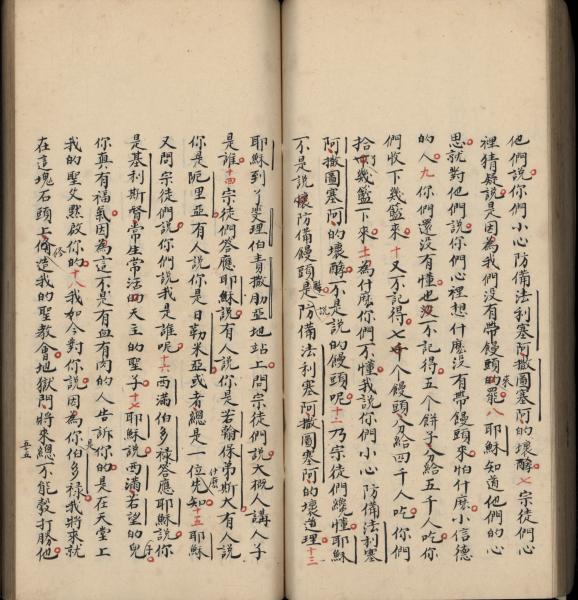 他們說你們小心防備法利塞阿撒圖塞阿的壞酵七宗徒們心
裡猜疑說是因為我們沒有帶饅頭來的罷八耶穌知道他們的心
思就對他們說你們心裡想什麽沒有帶饅頭來怕什麽小信德
的人九你們還沒有懂也沒不記得五個餅子分給五千人吃你
們收下幾籃來十又不記得七個饅頭分給四千人吃你們
拾幾籃下來十一為什麽你們不懂我說你們小心防備法利塞
阿撒圖塞阿的壞酵不是說的饅頭呢十二乃宗徒們纔懂耶穌
不是說防備饅頭是說防備法利塞阿撒圖塞阿的壞道理十三
耶穌到了斐理伯責撒肋亞地站上問宗徒們說大概人講人子
是誰十四宗徒們答應耶穌說有人說你是若翰保弟斯大有人說
你是阨里亞有人說你是日勒米亞或者總是一位什麽先知十五耶穌
又問宗徒們說你們說我是誰呢十六西滿伯多祿答應耶穌說你
是基利斯督常生常活的天主的聖子十七耶穌說西滿若望的兒子
你真有福氣因為這不是有血有肉的人告訴你的是在天堂上
我的聖父黙啟你的十八我如今對你說因為你是伯多祿我將來就
在這塊石頭上修造我的聖教會地獄門將來總不能彀打勝他